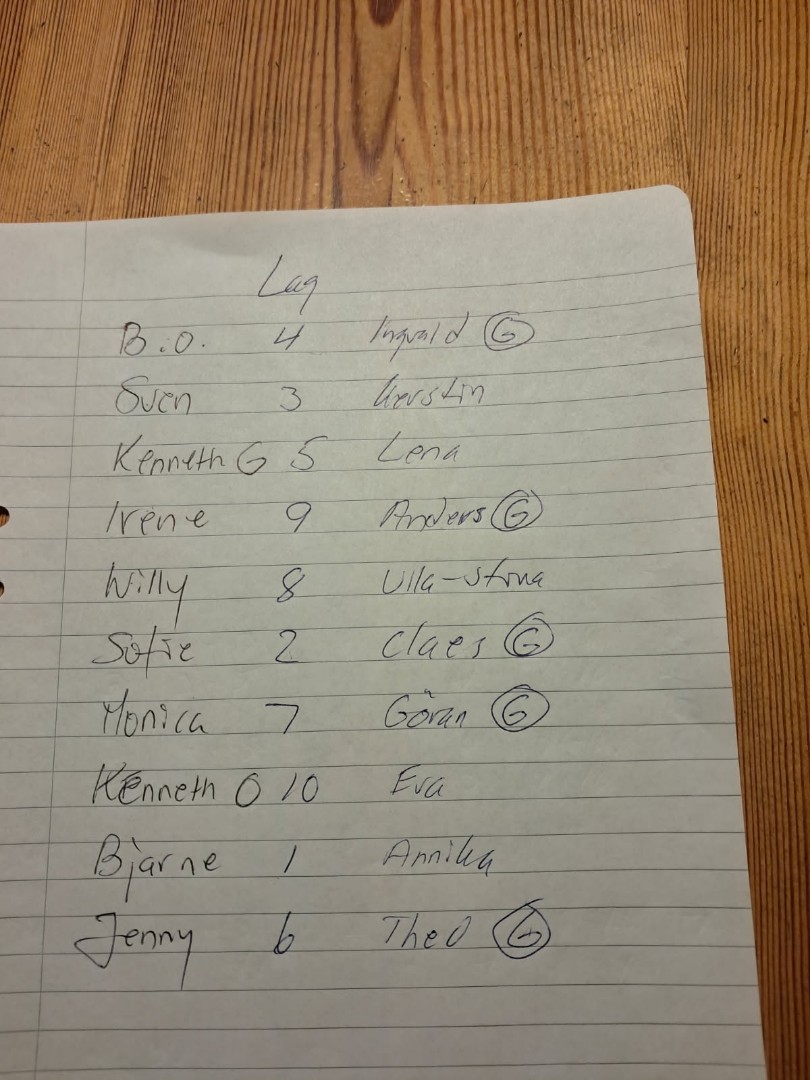 Lag
B.O. 4 Ingvald G
Sven 3 Kerstin
Kenneth G 5 Lena
Irene 9 Anders G
Willy 8 Ulla-Stina
Sofie 2 Claes G
Monica 7 Göran G
Kenneth O 10 Eva
Bjarne 1 Annika
Jenny 6 Theo G